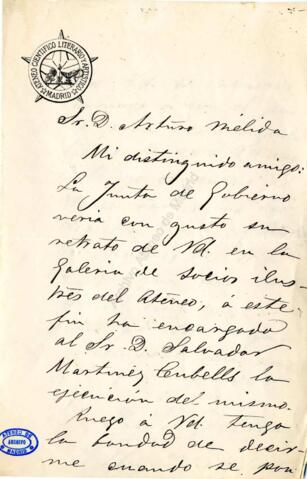 ATENEO CIENTÍFICO LITERARIO Y ARTÍSTICO
MADRID
Sr. D. Arturo Mélida
Mi distinguido amigo:
La Junta de Gobierno
veria con gusto su
retrato de Vd. en la
Galeria de socios ilus-
tres del Ateneo, á este
fin ha encargado
al Sr. D. Salvador
Martinez Cubells la
ejecucion del mismo.
Ruego á Vd. tenga
la bondad de decir
me cuando se pon
ATENEO DE
ARCHIVO
MADRID